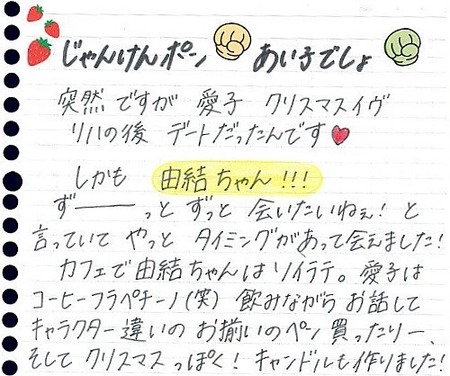 じゃんけんポン あい子でしょ
突然 ですが 愛子 クリスマスイヴ
リハの後 デートだったんです
しかも 由結ちゃん!!!
ず——っと ずっと 会いたいねぇ! と
言っていて やっと タイミングがあって会えました!
カフェで由結ちゃんはソイラテ。愛子は
コーヒーフラペチーノ(笑) 飲みながら お話して
キャラクター違いの お揃いのペン 買ったりー、
そして クリスマスっぽく! キャンドルも作りました!